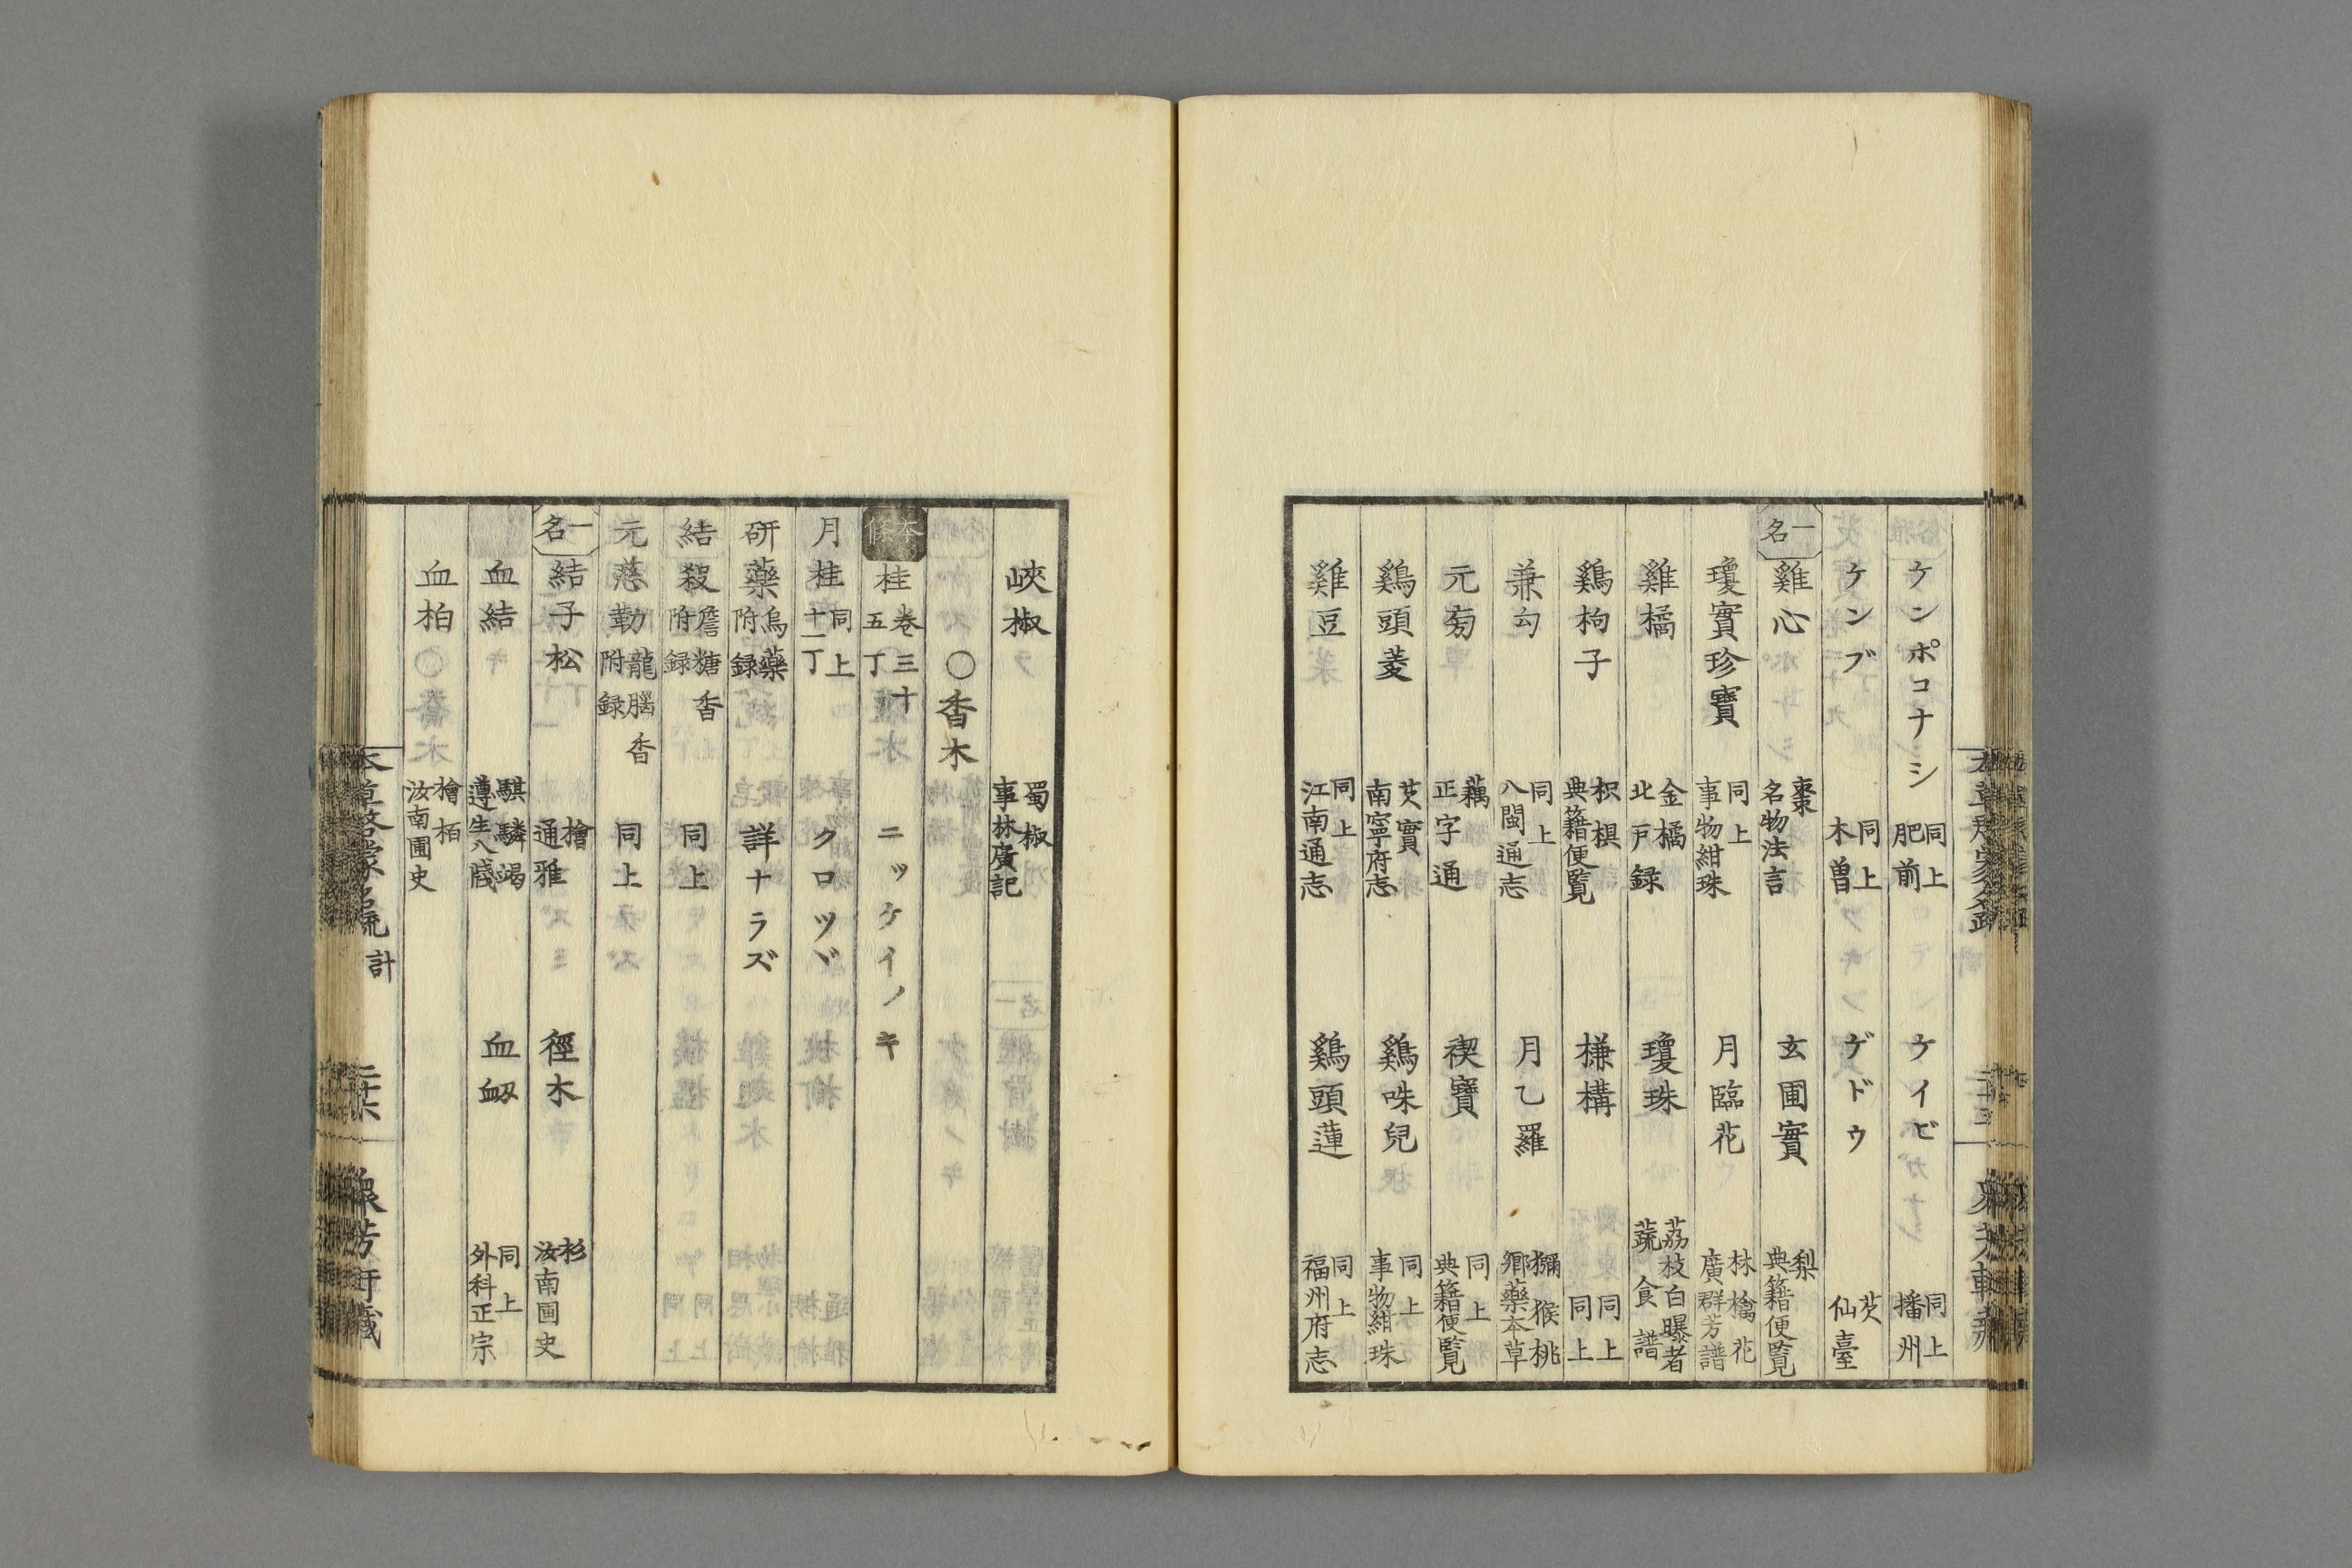 ケンポコナシ 同上 肥前 ケイビ 同上 播州
ケンブ 同上 木曽 ゲドウ 芡 仙臺
一名 雞心 棗 名物法言 玄圃實 梨 典籍便覧
瓊實珍寶 同上 事物紺珠 月臨花 林檎花 廣群芳譜
雞橘 金橘 北戸録 瓊珠 茘枝白曝者 蔬食譜
鷄枸子 枳椇 典籍便覧 槏構 同上 同上
兼勾 同上 八閩通志 月乙羅 獼猴桃 鄉藥本草
元蒭 藕 正字通 禊寶 同上 典籍便覧
鷄頭菱 芡實 南寧府志 鷄咮兒 同上 事物紺珠
雞豆 同上 江南通志 鷄頭蓮 同上 福州府志
峽椒 蜀椒 事林廣記
〇香木
本條 桂 卷三十五丁 ニツケイノキ
月桂 同上十一丁 クロツヾ
研藥 烏藥附録 詳ナラズ
結殺 詹糖香附録 同上
元慈勒 龍腦香附録 同上
一名 結子松 檜 通雅 徑木 杉 汝南圃史
血結 騏驎竭 遵生八牋 血衄 同上 外科正宗
血柏 檜栢 汝南圃史
本草啓蒙名疏 計 二十六 衆芳軒藏